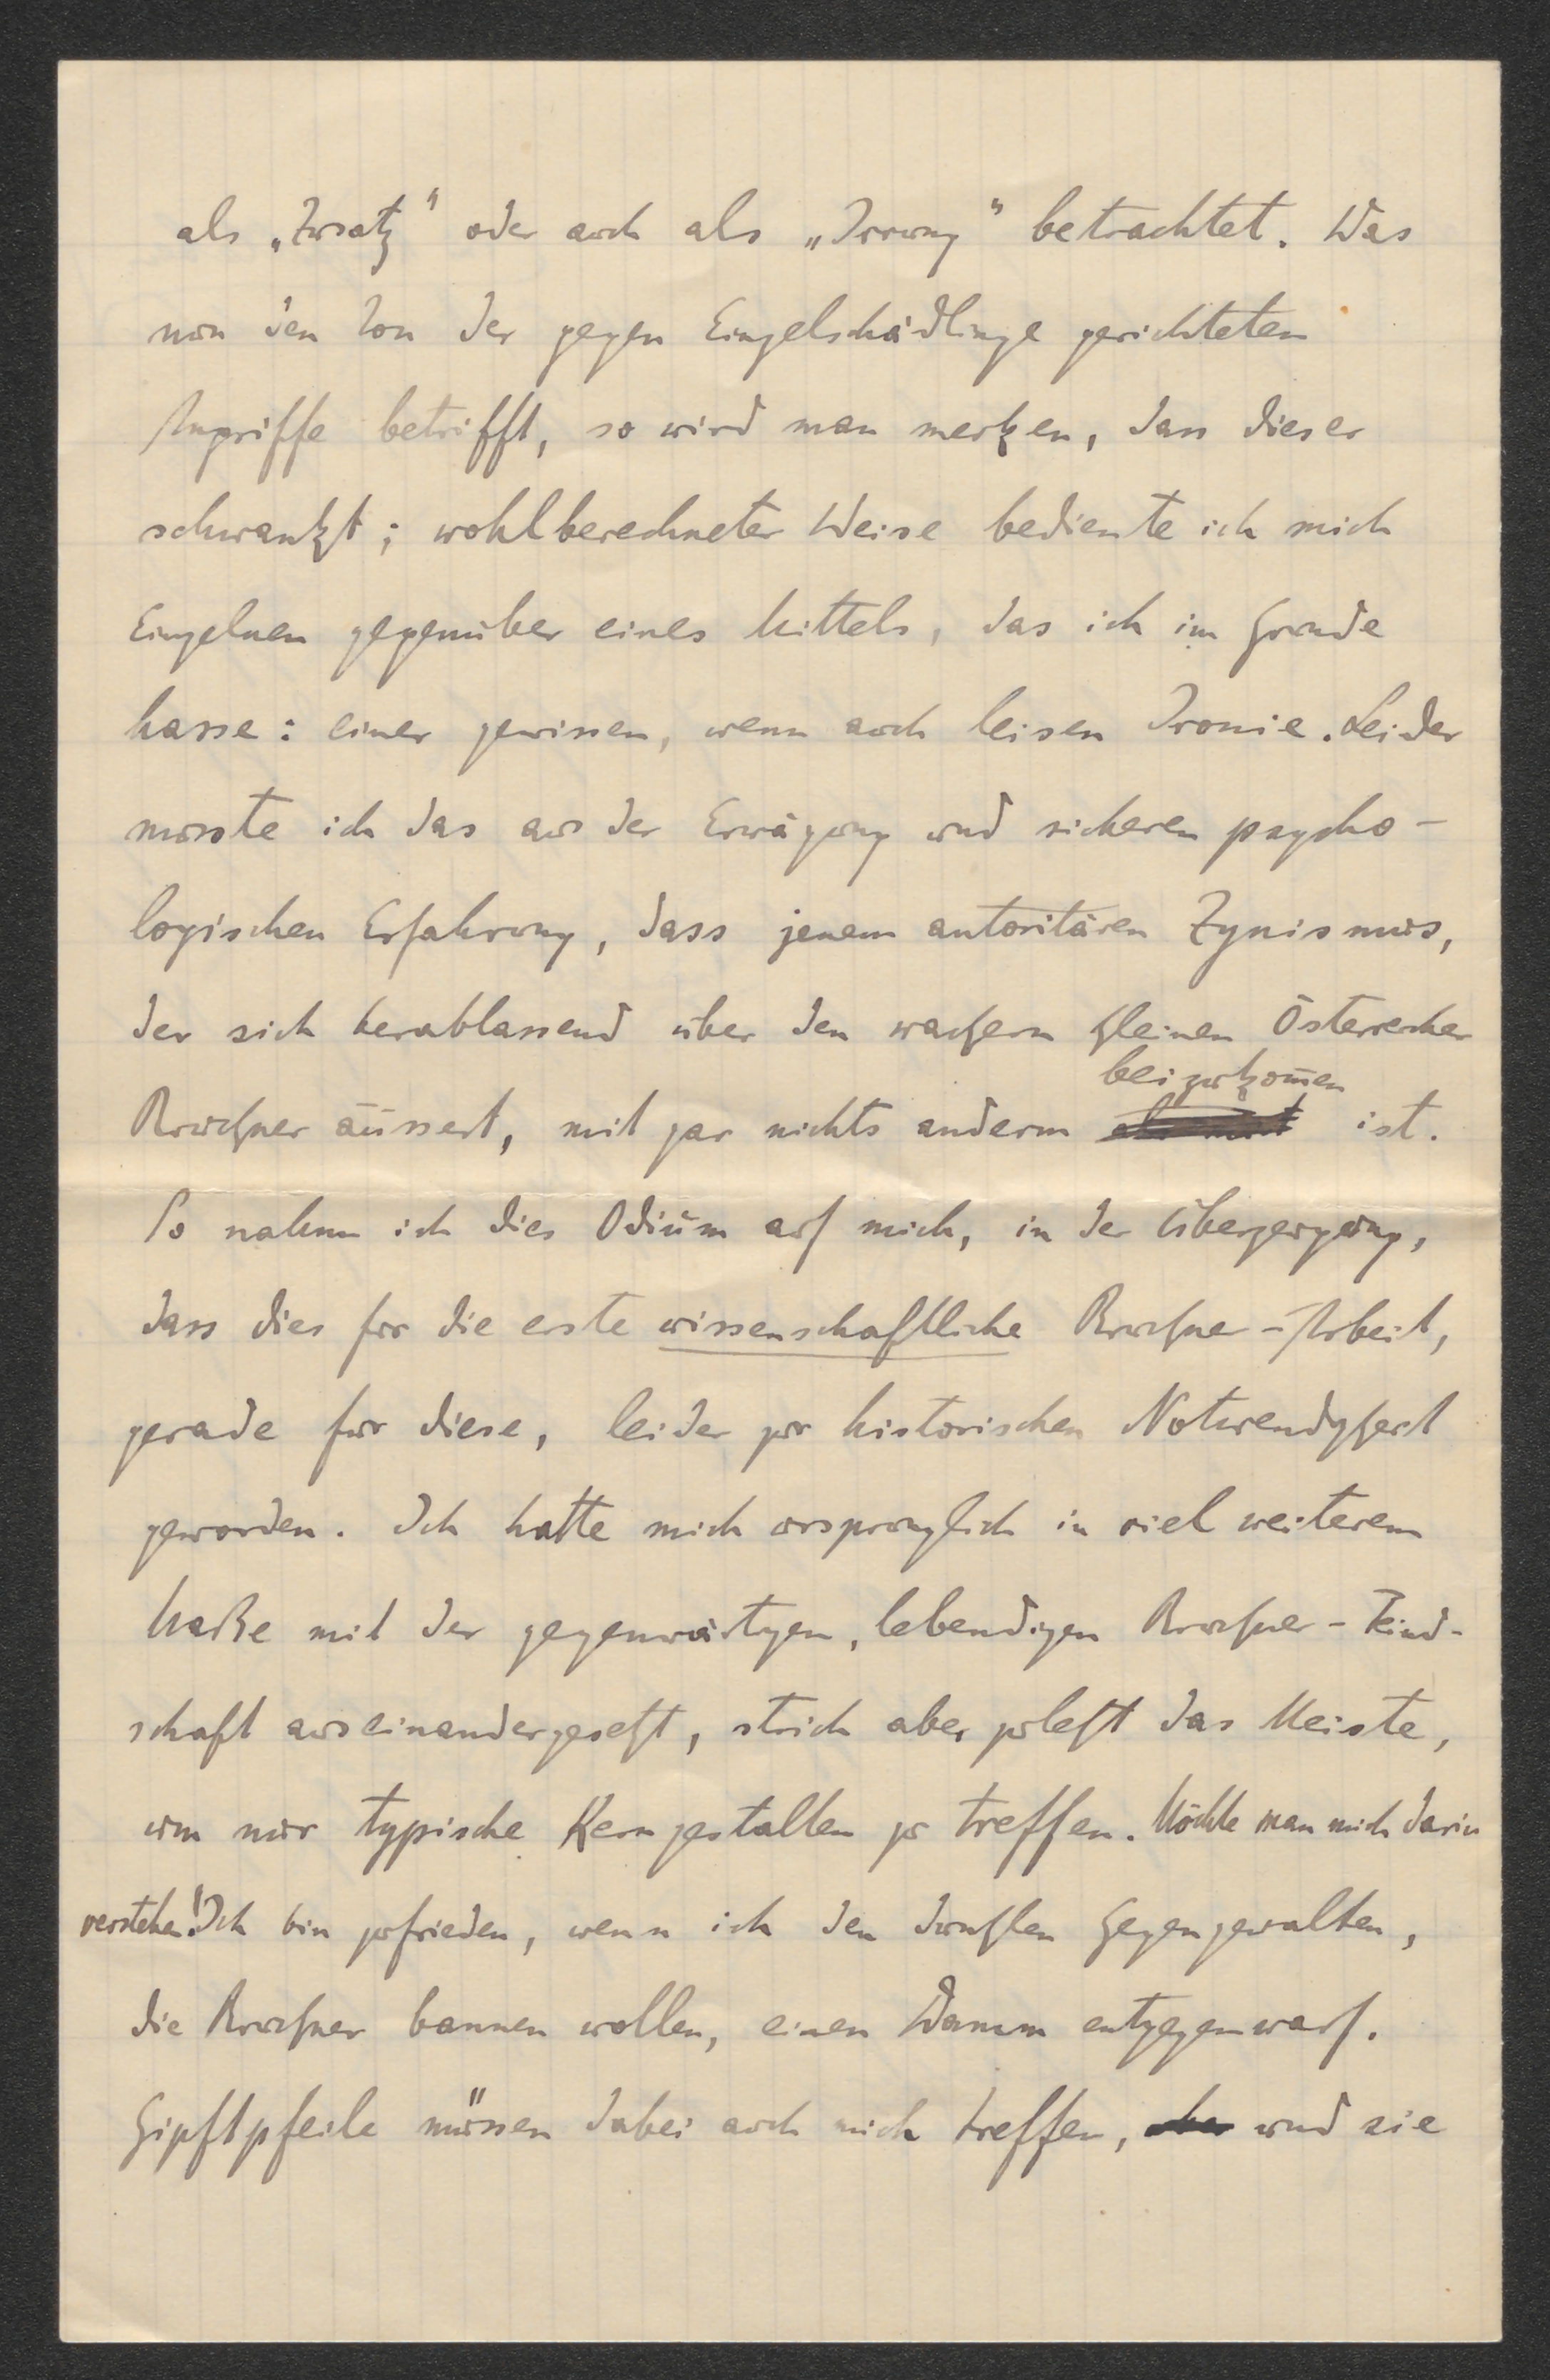 als „Zusatz“ oder auch als „Irrung“ betrachtet. Was
nun den Ton der gegen Einzelschädlinge gerichteten
Angriffe betrifft, so wird man merken, dass dieser
schwankt; wohlberechneter Weise bediente ich mich
Einzelnen gegenüber eines Mittels, das ich im Grunde
hasse: einer gewissen, wenn auch leisen Ironie. Leider
musste ich das aus der Erwägung und sicheren psycho-
logischen Erfahrung, dass jenem autoritären Zynismus,
der sich herablassend über den wackern kleinen Österreicher
beizukom̄en
Bruckner äussert, mit gar nichts anderm ist.
So nahm ich dies Odium auf mich, in der Überzeugung,
dass dies für die erste wissenschaftliche Bruckner-Arbeit,
gerade für diese, leider zur historischen Notwendigkeit
geworden. Ich hatte mich ursprünglich in viel weiterem
Maße mit der gegenwärtigen, lebendigen Bruckner-Feind-
schaft auseinandergesetzt, strich aber zuletzt das Meiste,
um nur typische Kerngestalten zu treffen. Möchte man mich darin
verstehen! Ich bin zufrieden, wenn ich den dunklen Gegengewalten,
die Bruckner bannen wollen, einen Damm entgegenwarf.
Gipftpfeile müssen dabei auch mich treffen, und sie